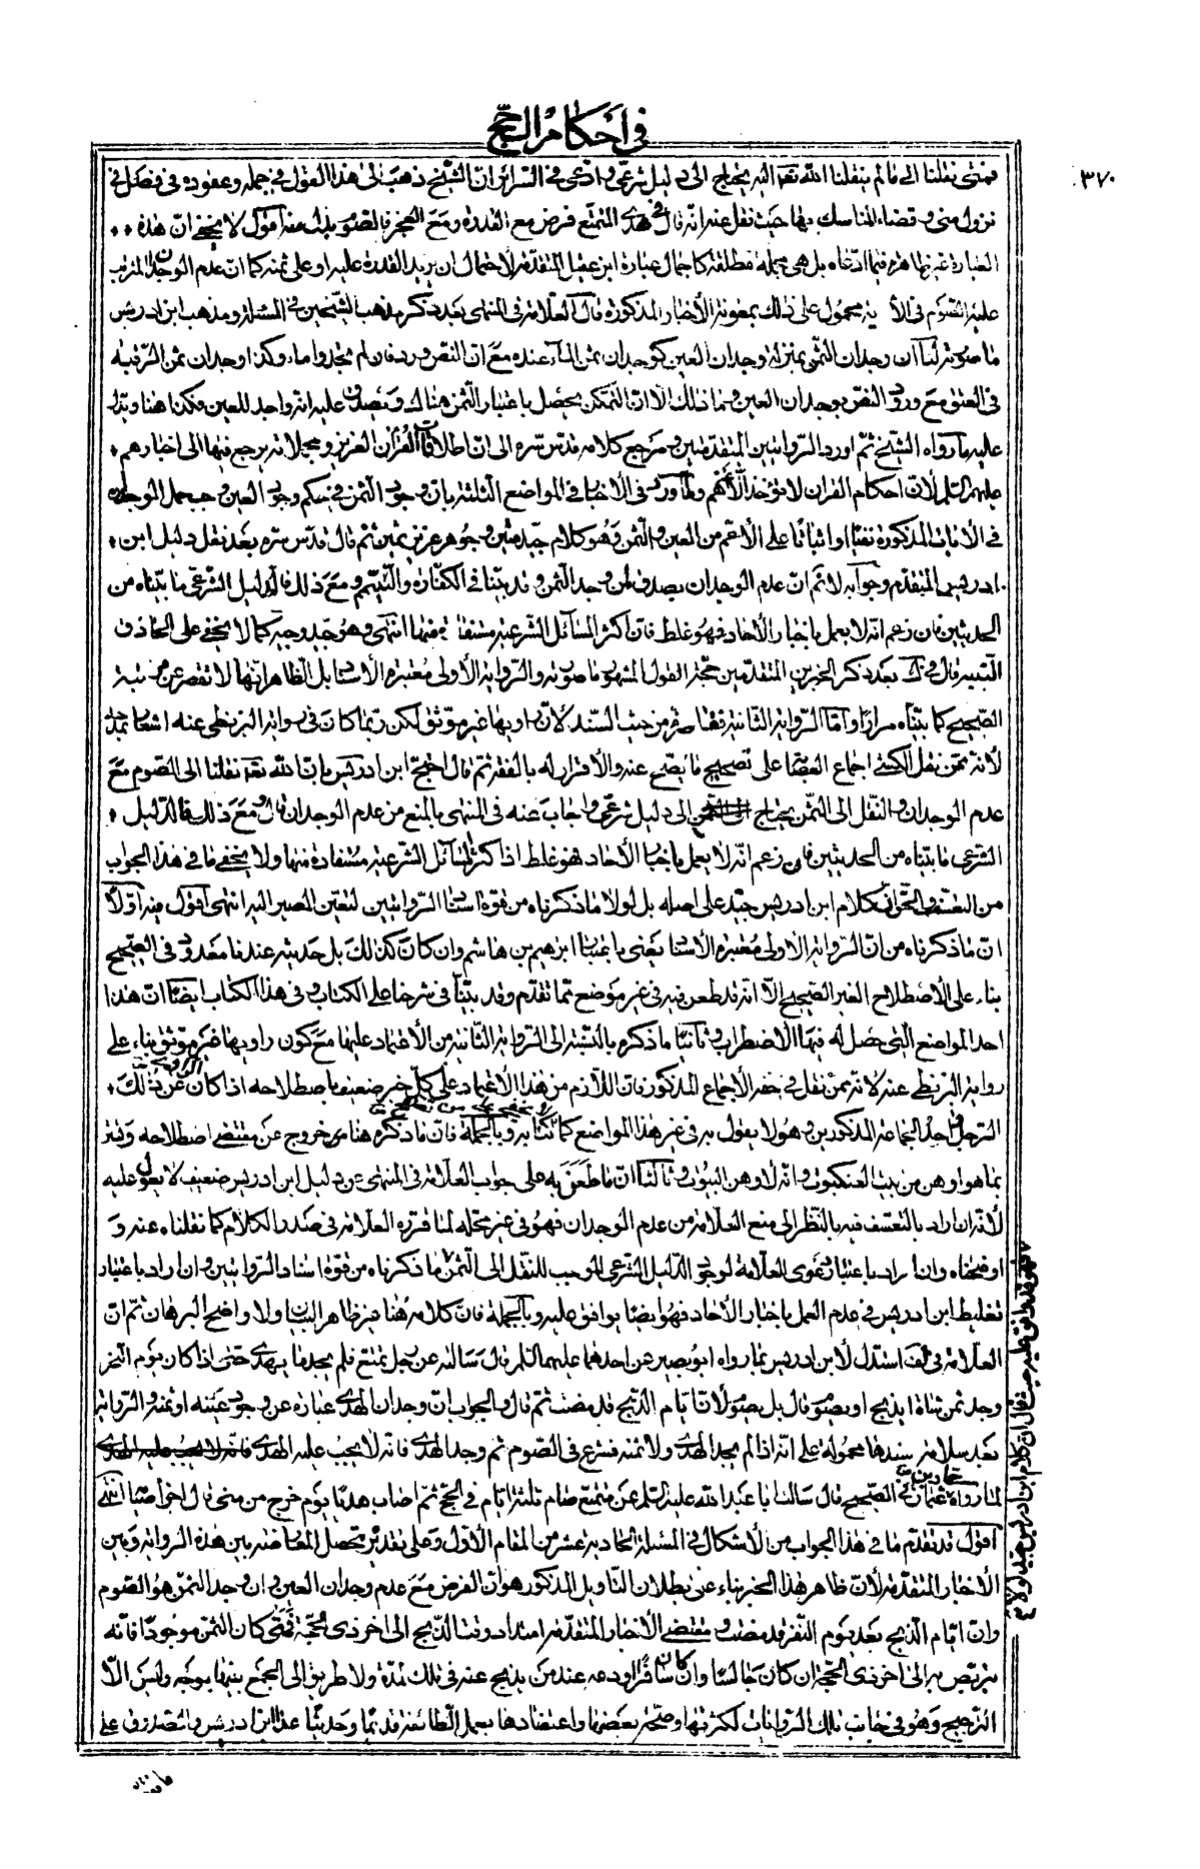 في احكام الحج
٣٧٠
فمتى نقلنا الى ما لم ينقلنا الله تعه اليه يحتاج الى دليل شرعي وادعى في السرائر ان الشيخ ذهب الى هذا القول في جمله وعقوده في فصل في
نزول منى وقضاء المناسك بها حيث نقل عنه انه قال فهدى المتمتع فرض مع القدرة ومع العجز فالصوم بدل منه اقول لا يخفى ان هذه
العبارة غير ظاهرة فيما ادعاه بل هي مجملة مطلقة كاجمال عبارة ابن عقيل المتقدمة لاحتمال ان يريد القدرة عليه او على ثمنه كما ان عدم الوجدان المرتب
عليه الصوم في الاية محمول على ذلك بمعونة الأخبار المذكورة قال العلامة في المنتهى بعد ذكر مذهب الشيخين في المسئلة ومذهب ابن ادريس
ما صورته لنا ان وجدان الثمن بمنزلة وجدان العين كوجدان ثمن الماء عنده مع ان النص ورد فان لم تجدوا ماء وكذا وجدان ثمن الرقبة
في العتق مع ورود النص بوجدان العين وما ذلك الا ان التمكن يحصل باعتبار الثمن هناك ويصدق عليه انه واجد للعين فكذا هنا ويدل
عليه ما رواه الشيخ ثم اورد الروايتين المتقدمتين ومرجع كلامه قدس سره الى ان اطلاقات القرآن العزيز ومجملاته يرجع فيها الى اخبارهم
عليهم السلم لأن احكام القران لا تؤخذ الا عنهم ولما ورد في الأخبار في المواضع الثلثة بان وجود الثمن في حكم وجود العين وجب حمل الوجدان
في الآيات المذكورة نفيا او اثباتا على الأعم من العين والثمن وهو كلام جيد متين وجوهر عزيز ثمين ثم قال قدس سره بعد نقل دليل ابن
ادريس المتقدم وجوابه لا ثم ان عدم الوجدان يصدق لمن وجد الثمن وقد بينا في الكفارة والتيمم ومع ذلك فالدليل الشرعي ما بيناه من
الحديثين فان زعم انه لا يعمل باخبار الأحاد فهو غلط فان اكثر المسائل الشرعية مستفادة منها انتهى وهو جيد وجيه كما لا يخفى على الحاذق
النبيه قال في ك بعد ذكر الخبرين المتقدمين حجة القول المشهور ما صورته والرواية الأولى معتبرة الاسناد بل الظاهر انها لا تقصر عن مرتبة
الصحيح كما بيناه مرارا واما الرواية الثانية فقاصرة من حيث السند لأن راويها غير موثق لكن ربما كان في رواية البزنطي عنه اشعار بمدحه
لأنه ممن نقل الكشي اجماع العصابة على تصحيح ما يصح عنه والاقرار له بالفقه ثم قال احتج ابن ادريس بان الله تعه نقلنا الى الصوم مع
عدم الوجدان والنقل الى الثمن يحتاج الى دليل شرعي واجاب عنه في المنتهى بالمنع من عدم الوجدان قال ومع ذلك فالدليل
الشرعي ما بيناه من الحديثين فان زعم انه لا يعمل باخبار الأحاد فهو غلط اذ اكثر المسائل الشرعية مستفادة منها ولا يخفى ما في هذا الجواب
من التعسف والحق ان كلام ابن ادريس جيد على اصله بل لولا ما ذكرناه من قوة اسناد الروايتين لتعين المصير اليه انتهى اقول فيه اولا
ان ما ذكرناه من ان الرواية الاولى معتبرة الأسناد يعني باعتبار ابرهيم بن هاشم وان كان كذلك بل حديثه عندنا معدود في الصحيح
بناء على الاصطلاح الغير الصحيح الا انه قد طعن فيه في غير موضع مما تقدم وقد بينا في شرحنا على الكتاب وفي هذا الكتاب ايضا ان هذا
احد المواضع التي حصل له فيها الاضطراب وثانيا ما ذكره بالنسبة الى الرواية الثانية من الأعتماد عليها مع كون راويها غير موثق بناء على
رواية البزنطي عنه لانه ممن نقل في حقه الأجماع المذكور فان اللازم من هذا الاعتماد على كل خبر ضعيف باصطلاحه اذا كان الراوي عن ذلك
الرجل احد الجماعة المذكورين وهو لا يقول به في غير هذا المواضع كما وبالجملة فان ما ذكره هنا خروج عن مقتضى اصطلاحه وتستر
بما هو اوهن من بيت العنكبوت وانه لاوهن البيوت وثالثا ان ما طعن به على جواب العلامة في المنتهى عن دليل ابن ادريس ضعيف لا يعول عليه
لأنه ان اراد بالتعسف فيه بالنظر الى منع العلامة من عدم الوجدان فهو في غير محله لما قرره العلامة في صدر الكلام كما نقلناه عنه و
اوضحناه وان اراد باعتبار دعوى العلامة لوجود الدليل الشرعي الموجب للنقل الى الثمن ما ذكرناه من قوة اسناد الروايتين وان اراد باعتبار
تغليط ابن ادريس في عدم العمل باخبار الأحاد فهو ايضا يوافق عليه وبالجملة فان كلامه هنا غير ظاهر البيان ولا واضح البرهان ثم ان
العلامة في لف استدل لابن ادريس بما رواه ابو بصير عن احدهما عليهما السلم قال سألته عن رجل تمتع فلم يجد ما يهدى حتى اذا كان يوم النفر
وجد ثمن شاة ايذبح او يصوم قال بل يصوم لأن ايام الذبح قد مضت ثم قال والجواب ان وجدان الهدى عبارة عن وجود عينه او ثمنه والرواية
بعد سلامة سندها محمولة على انه اذا لم يجد الهدى ولا ثمنه فشرع في الصوم ثم وجد الهدى فانه لا يجب عليه الهدى
لما رواه حماد بن عثمان في الصحيح قال سألت ابا عبد الله عليه السلم عن متمتع صام ثلثة ايام في الحج ثم اصاب هديا يوم خرج من منى قال اجزأه صيامه انتهى
اقول قد تقدم ما في هذا الجواب من الاشكال في المسئلة الحادية عشر من المقام الأول وعلى تقديره تحصل المعارضة بين هذه الرواية وبين
الأخبار المتقدمة لأن ظاهر هذا الخبر بناء على بطلان التأويل المذكور هو ان الفرض مع عدم وجدان العين وان وجد الثمن هو الصوم
وان ايام الذبح بعد يوم النفر قد مضت ومقتضى الأخبار المتقدمة امتداد وقت الذبح الى اخر ذى الحجة فمتى كان الثمن موجودا فانه
يتربص به الى اخر ذى الحجة ان كان جالسا وان كان مسافرا اودعه عند من يذبح عنه في تلك المدة ولا طريق الى الجمع بينهما بوجه وليس الا
الترجيح وهو في جانب تلك الروايات لكثرتها وصحة بعضها واعتضادها بعمل الطائفة قديما وحديثا عدا ابن ادريس والصدوق على
فهو قد وافق عليه حيث قال ان كلام ابن ادريس جيد لولا